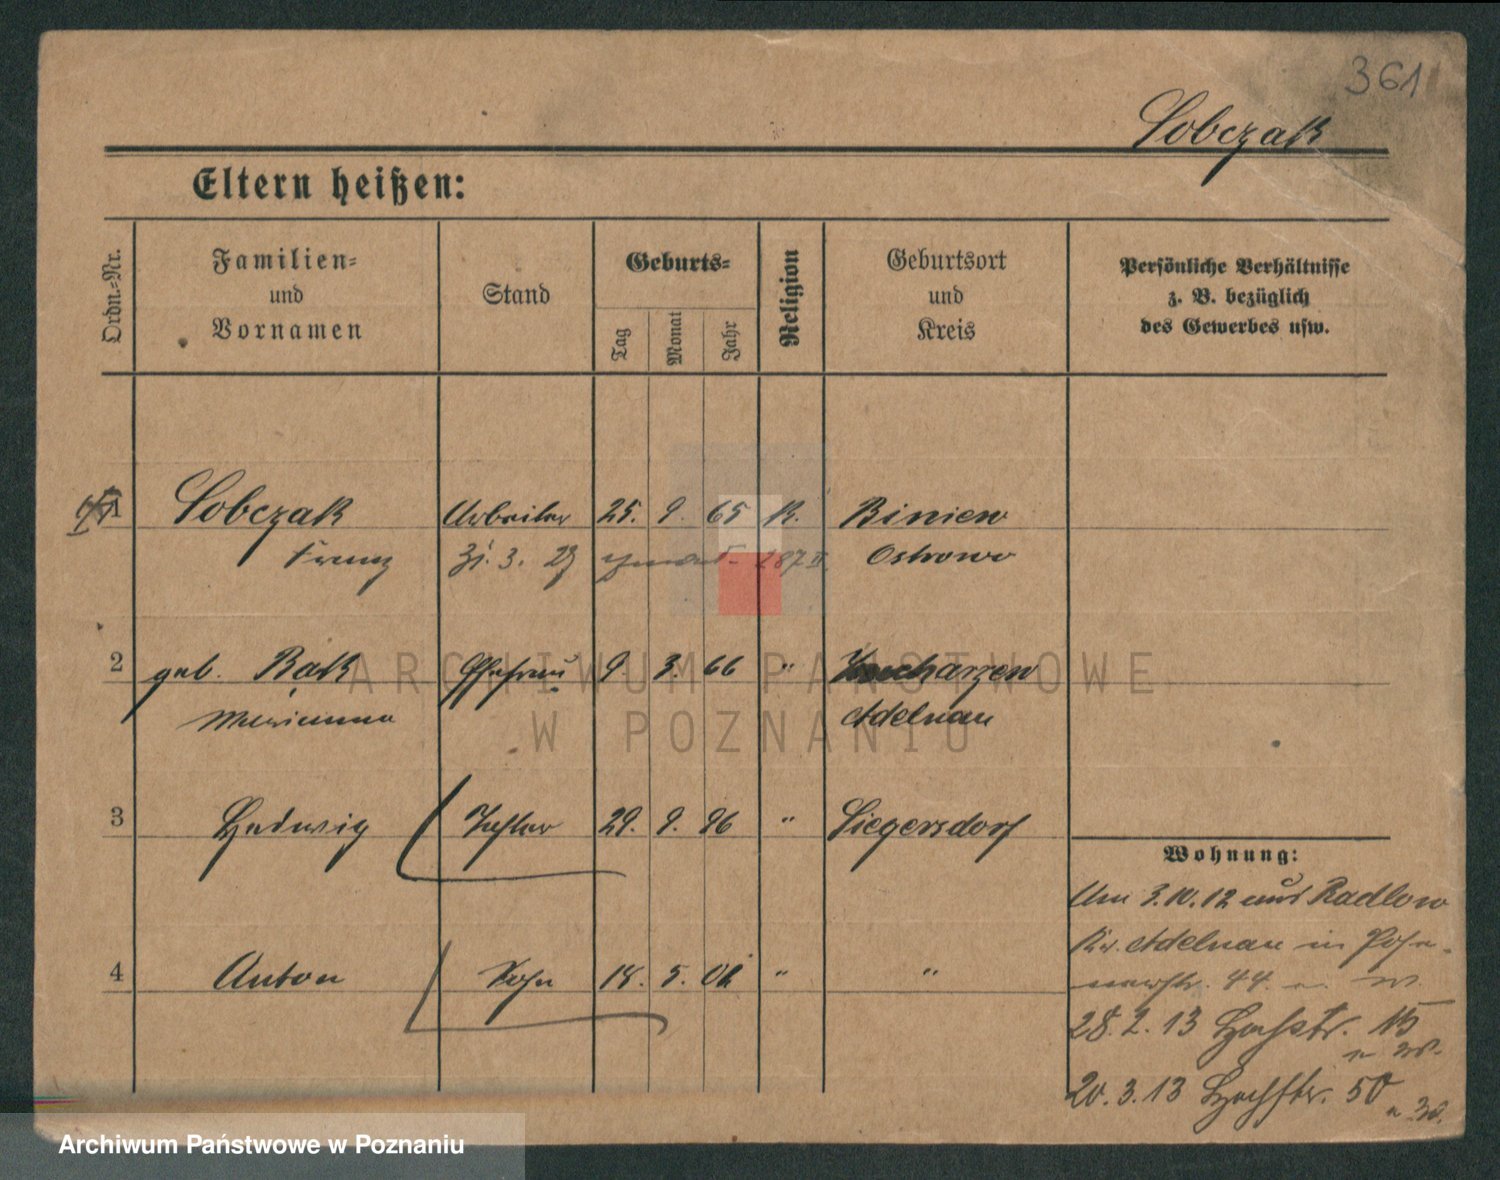 361
Sobczak
Eltern heißen:
Ordn.-Nr.
Familien-
und
Vornamen
Stand
Geburts-
Tag
Monat
Jahr
Religion
Geburtsort
und
Kreis
Persönliche Verhältnisse
z. B. bezüglich
des Gewerbes usw.
1 Sobczak Arbeiter 25. 9. 65 K. Biniew
Franz 31. 3. 23 287 II Ostrowo
2 geb. Bąk Ehefrau 9. 3. 66 " charzew
Marianna Adelnau
3 Hedwig Tochter 29. 9. 96 " Siegersdorf
4 Anton Sohn 18. 5. 01 " "
Wohnung:
Am 3.10.12 aus Radlow
Kr. Adelnau in
44.
28. 2. 13 15
20. 3. 13 50
ARCHIWUM PAŃSTWOWE
W POZNANIU
Archiwum Państwowe w Poznaniu